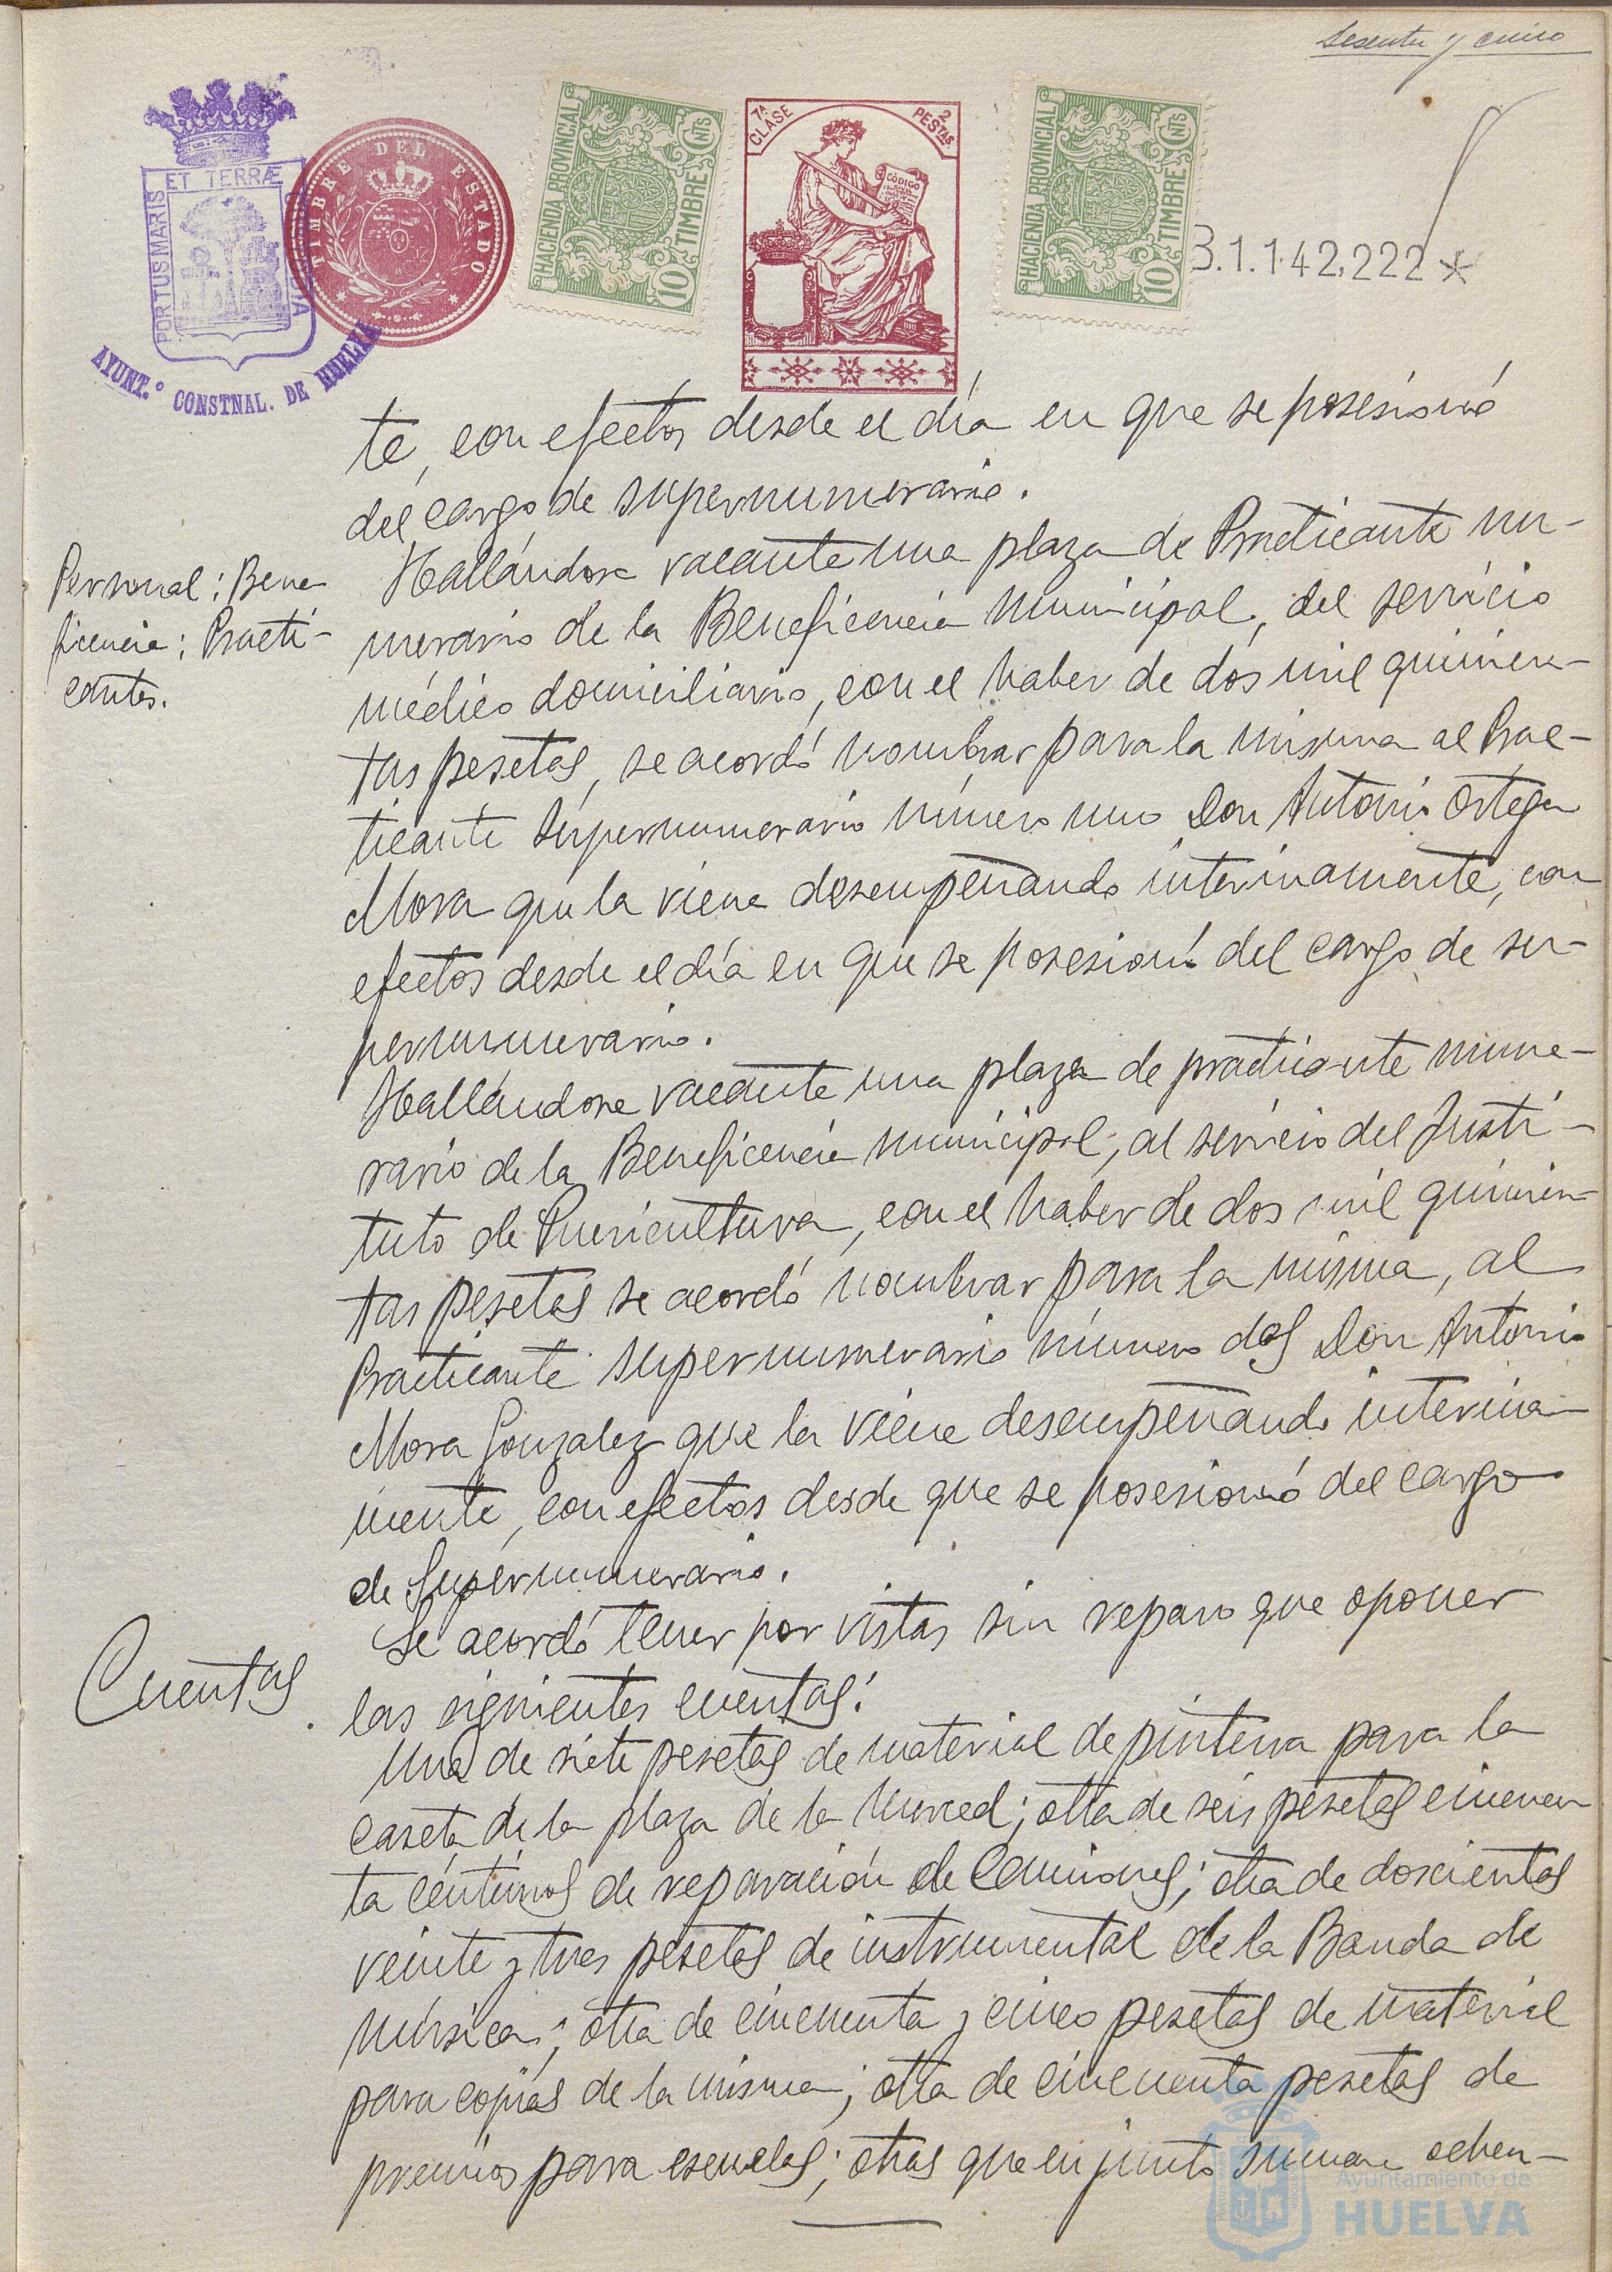 Sesenta y cinco
ET TERRÆ
PORTUS MARIS
CUSTODIA
AYUNT.º CONSTNAL. DE HUELVA
TIMBRE DEL ESTADO
HACIENDA PROVINCIAL
10 CNTS
TIMBRE
7ª CLASE
2 PESTAS
CÓDIGO
HACIENDA PROVINCIAL
10 CNTS
TIMBRE
B.1.142,222 *
te, con efectos desde el día en que se posesionó
del cargo de supernumerario.
Personal: Bene
ficencia: Practi-
cantes.
Hallándose vacante una plaza de Practicante nu-
merario de la Beneficencia Municipal, del servicio
médico domiciliario, con el haber de dos mil quinien-
tas pesetas, se acordó nombrar para la misma al Prac-
ticante Supernumerario número uno Don Antonio Ortega
Mora que la viene desempeñando interinamente, con
efectos desde el día en que se posesionó del cargo de su-
pernumerario.
Hallándose vacante una plaza de practicante nume-
rario de la Beneficencia municipal, al servicio del Insti-
tuto de Puericultura, con el haber de dos mil quinien-
tas pesetas se acordó nombrar para la misma, al
Practicante supernumerario número dos Don Antonio
Mora Gonzalez que la viene desempeñando interina-
mente, con efectos desde que se posesionó del cargo
de Supernumerario.
Cuentas.
Se acordó tener por vistas sin reparo que oponer
las siguientes cuentas:
Una de siete pesetas de material de pintura para la
caseta de la plaza de la Merced; otra de seis pesetas cincuen
ta céntimos de reparación de Camiones; otra de doscientas
veinte y tres pesetas de instrumental de la Banda de
Música; otra de cincuenta y cinco pesetas de material
para copias de la misma; otra de cincuenta pesetas de
premios para escuelas; otras que en junto suman ochen-
Ayuntamiento de
HUELVA